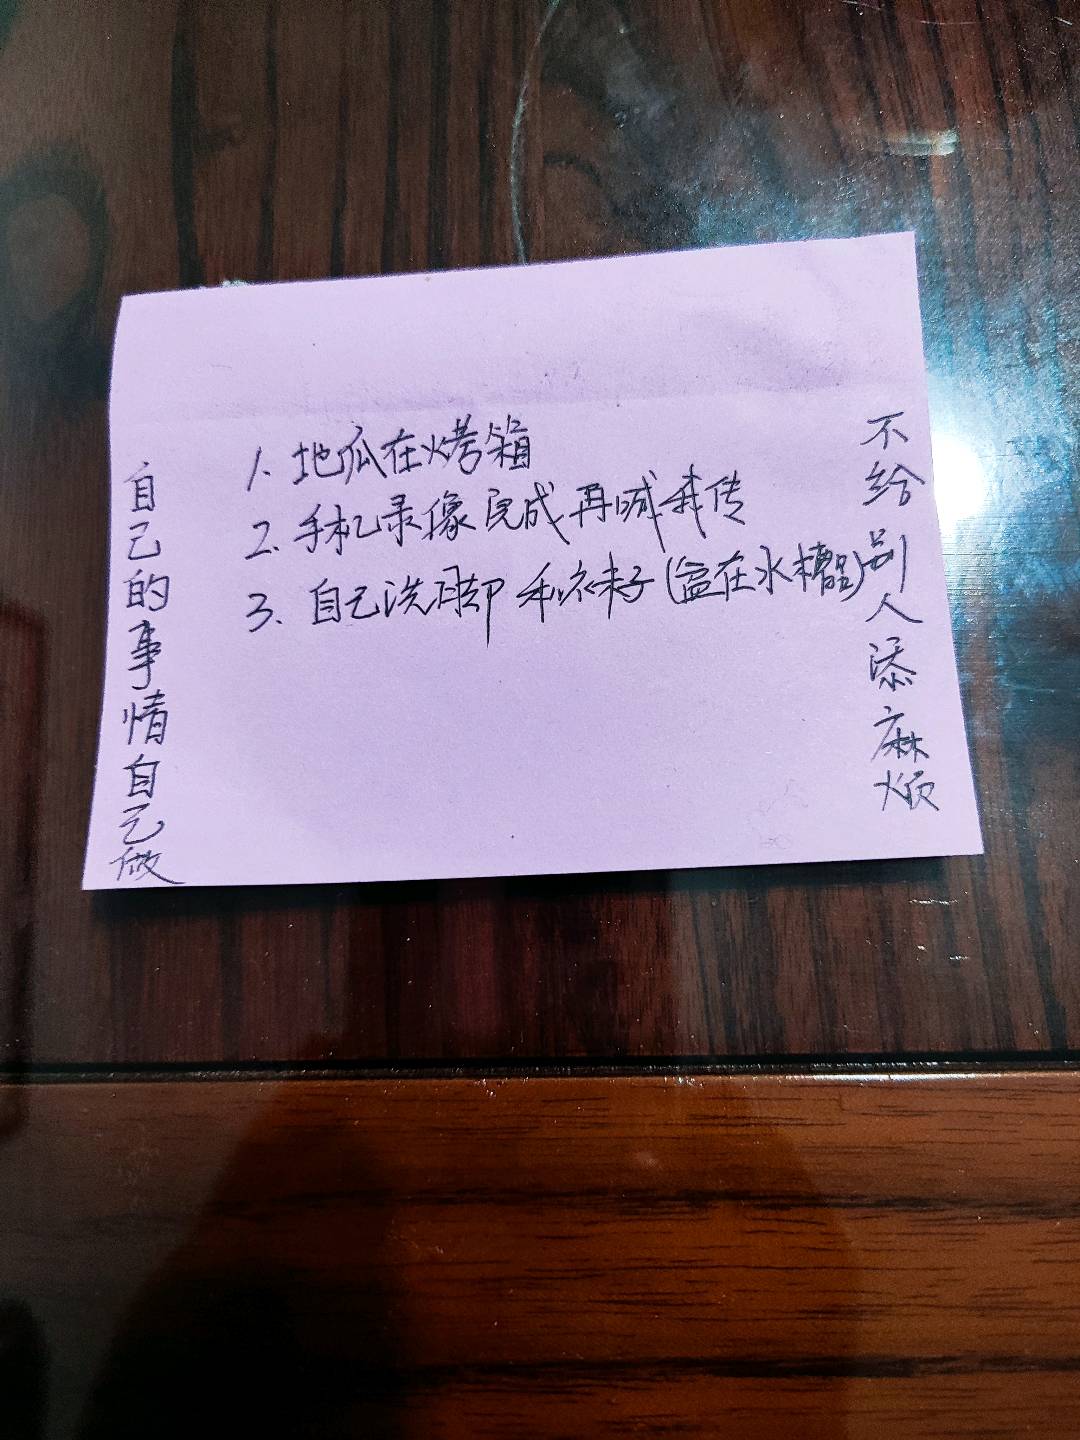 自己的事情自己做
1. 地瓜在烤箱
2. 手机录像完成再喊我传
3. 自己洗脚和袜子(盆在水槽)
不给别人添麻烦